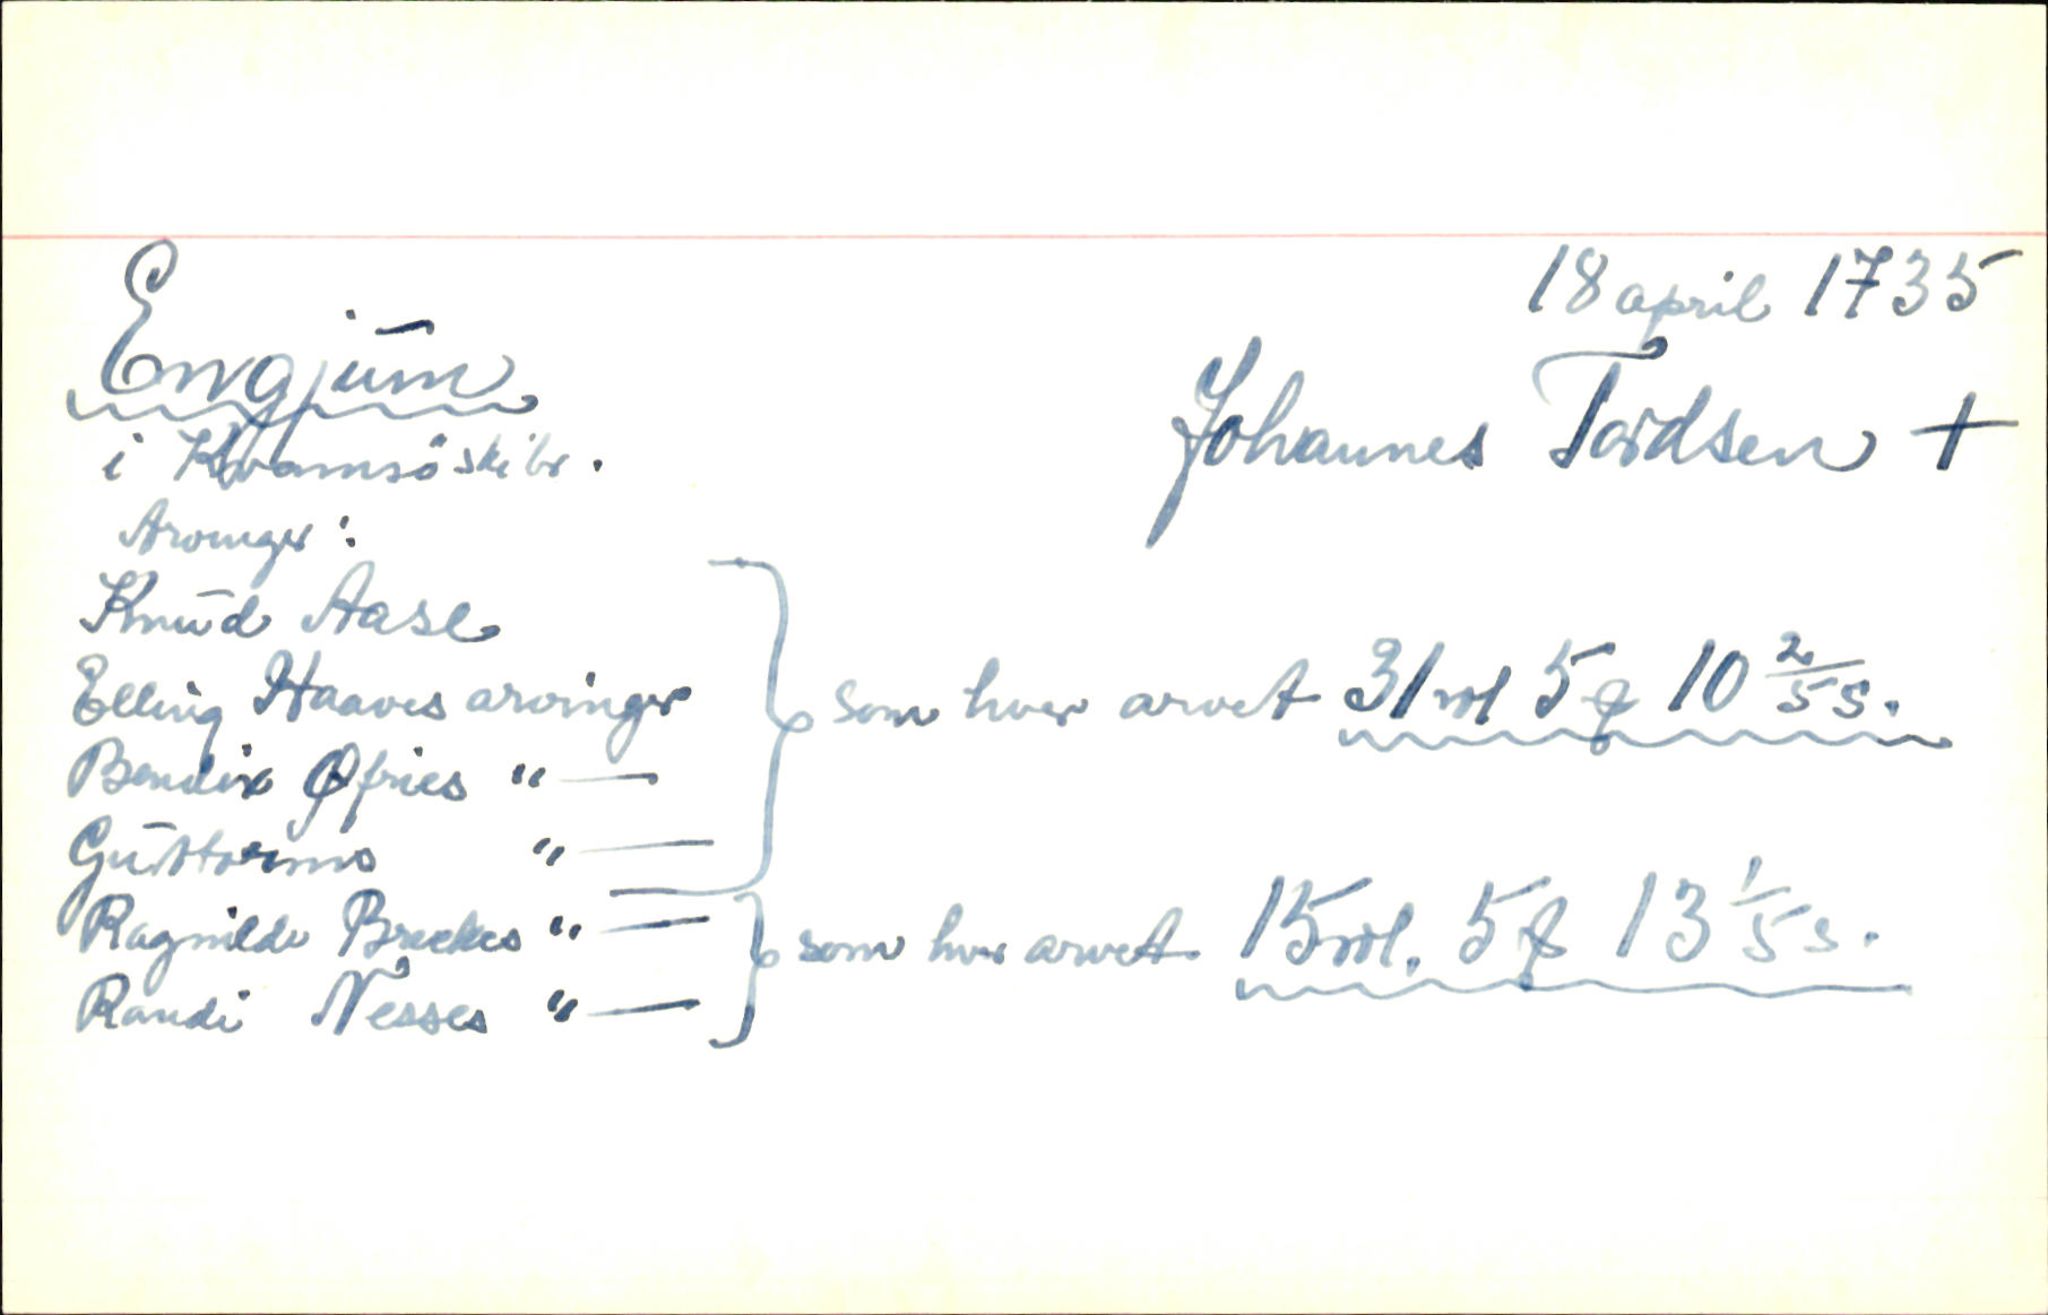 18 april 1735
Engjum
Johannes Tordsen +
i Kvamsöskibr.
Arvinger:
Knud Aase
Elling Haaves arvinger
som hver arvet 31 rdl 5 ꝗ 10 2/5 s.
Bendix Øfries " —
Guttorms " —
Ragnilde Brekkes " —
som hver arvet 15 rdl. 5 ꝗ 13 1/5 s.
Randi Nesses " —